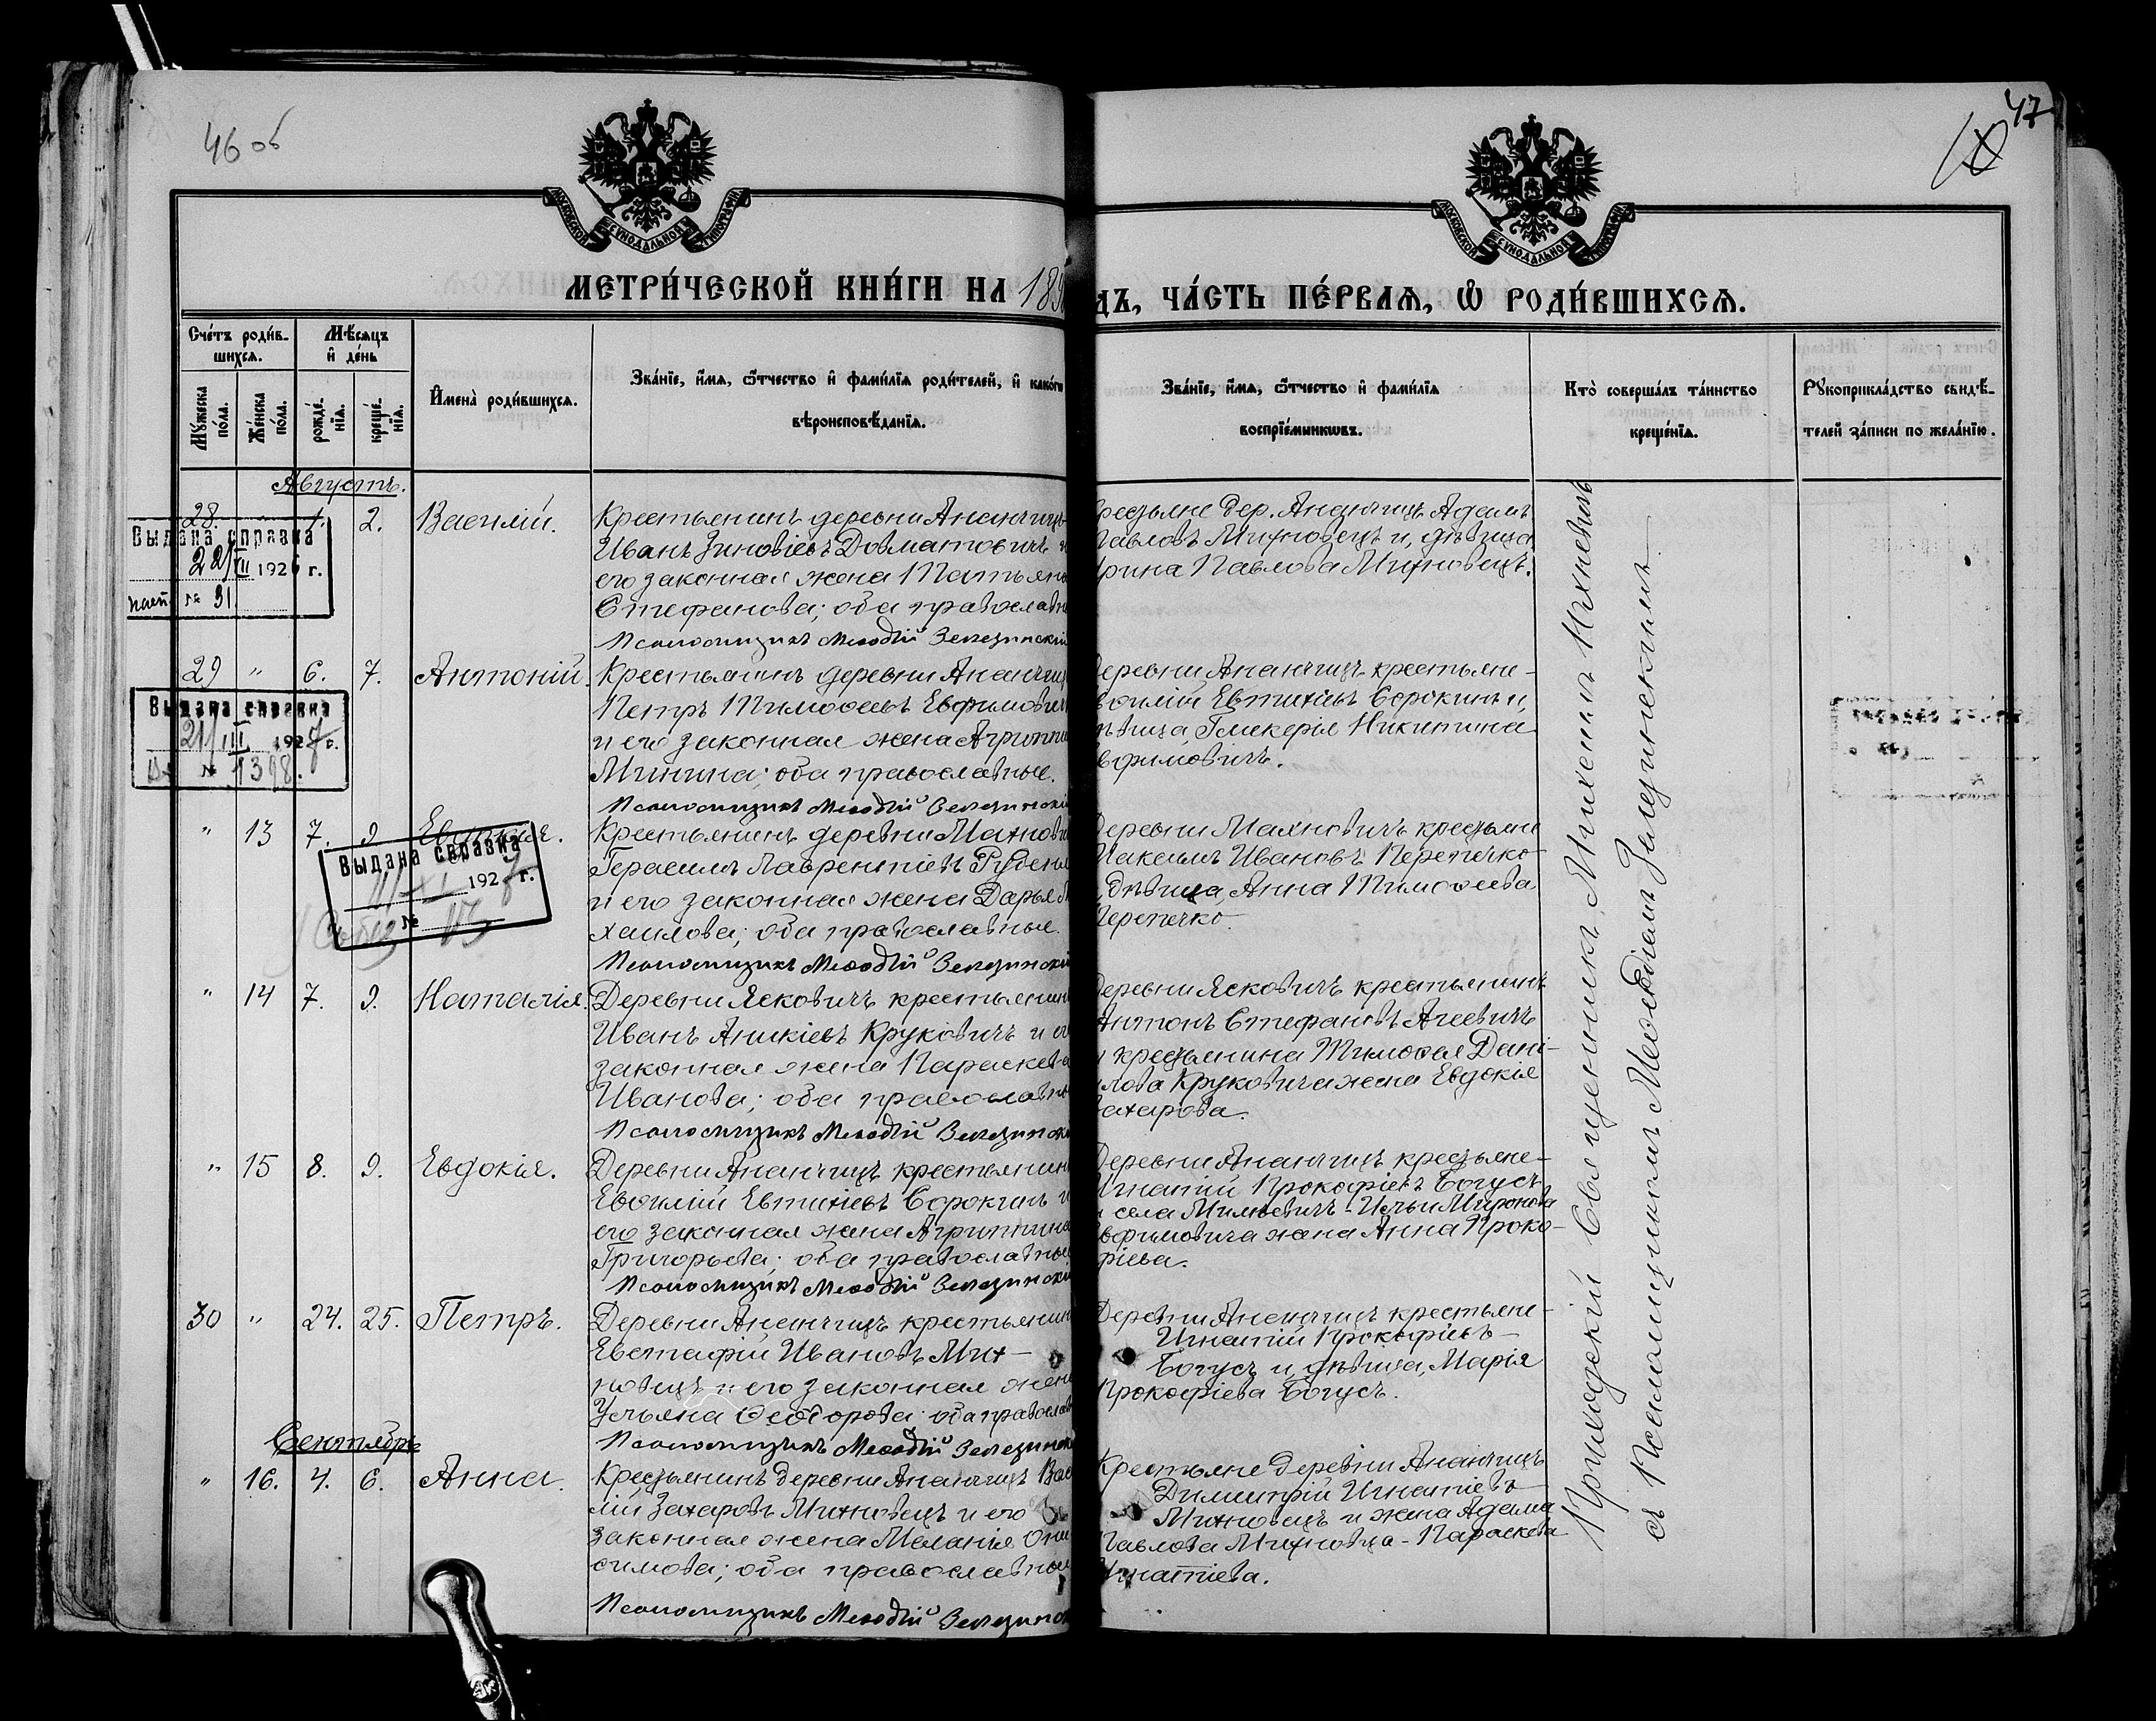 46 об
47
МОСКОВСКОЙ СѴНОДАЛЬНОЙ ТИПОГРАФІИ
МОСКОВСКОЙ СѴНОДАЛЬНОЙ ТИПОГРАФІИ
МЕТРИ́ЧЕСКОЙ КНИ́ГИ НА 189
ДЪ, ЧА́СТЬ ПЕ́РВАѦ, Ѡ РОДИ́ВШИХСѦ.
Сче́тъ роди́в-
шихсѧ.
Мѣ́сѧцъ
и҆ де́нь
Мꙋ́жеска
по́ла.
Же́нска
по́ла.
рожде́-
нїѧ.
креще́-
нїѧ.
И҆мена̀ роди́вшихсѧ.
Зва́нїе, и҆́мѧ, ѻ҆́тчество и҆ фами́лїѧ роди́телей, и҆ како́гѡ
вѣроисповѣ́данїѧ.
Зва́нїе, и҆́мѧ, ѻ҆́тчество и҆ фами́лїѧ
воспрїе́мникѡвъ.
Кто̀ соверша́лъ та́инство
креще́нїѧ.
Рꙋкоприкла́дство свидѣ́-
телей за́писи по жела́нїю.
Августъ.
28. 1. 2. Василій.
Крестьянинъ деревни Ананчицъ
Иванъ Зиновіевъ Довматовичъ и
его законная жена Татьяна
Стефанова; оба православн
Псаломщикъ Меѳодій Зелезинскій
Крестьяне дер. Ананчицъ Адамъ
Павловъ Михновецъ и, дѣвица
Ирина Павлова Михновецъ.
Выдана справка
22/XII 1926 г.
№ 31.
29 " 6. 7. Антоній.
Крестьянинъ деревни Ананчиц
Петръ Тимоѳеевъ Евфимович
и его законная жена Агриппи
Минина; оба православные.
Псаломщикъ Меѳодій Зелезинскій
Деревни Ананчицъ крестьяне-
Евѳимій Евтихіевъ Сорокинъ и,
дѣвица, Гликерія Никитина
Евфимовичъ.
Выдана справка
21/III 1927 г.
№ 1398.
" 13 7. 9.
Крестьянинъ деревни Махнови
Герасимъ Лаврентіевъ Рубеня
и его законная жена Дарья М
хаилова; оба православные.
Псаломщикъ Меѳодій Зелезинскій
Деревни Махновичъ крестьяне
Максимъ Ивановъ Перепечко
дѣвица, Анна Тимоѳеева
Перепечко.
Выдана справка
192 г.
№ 113
" 14 7. 9. Наталія.
Деревни Ясковичъ крестьянин
Иванъ Аникіевъ Круковичъ и ег
законная жена Параскева
Иванова; оба православн
Псаломщикъ Меѳодій Зелезинск
Деревни Ясковичъ крестьянинъ
Антонъ Стефановъ Агеевичъ
и крестьянина Тимоѳея Дані-
илова Круковича жена Евдокія
Захарова.
" 15 8. 9. Евдокія.
Деревни Ананчицъ крестьянин
Евѳимій Евтихіевъ Сорокинъ и
его законная жена Агриппина
Григорьева; оба православные
Псаломщикъ Меѳодій Зелезински
Деревни Ананчицъ крестьяне-
Игнатій Прокофіевъ Богусъ
и села Милевичъ-Ильи Миронова
Евфимовича жена Анна Проко-
фіева.
30 " 24. 25. Петръ.
Деревни Ананчицъ крестьянин
Евстафій Ивановъ Мих-
новецъ и его законная жена
Ульяна Ѳеодорова; оба православ
Псаломщикъ Меѳодій Зелезинск
Деревни Ананчицъ крестьяне-
Игнатій Прокофіевъ-
Богусъ и, дѣвица, Марія
Прокофіева Богусъ.
Сентябрь
" 16. 4. 6. Анна.
Крестьянинъ деревни Ананчицъ Васи
лій Захаровъ Михновецъ и его
законная жена Меланія Они
симова; оба православные
Псаломщикъ Меѳодій Зелезинск
Крестьяне деревни Ананчицъ
Димитрій Игнатіевъ
Михновецъ и жена Адама
Павлова Михновца-Параскева
Игнатіева.
Приходскій Священникъ Михаилъ
съ Псаломщикомъ Меѳодіемъ Зелезинскимъ